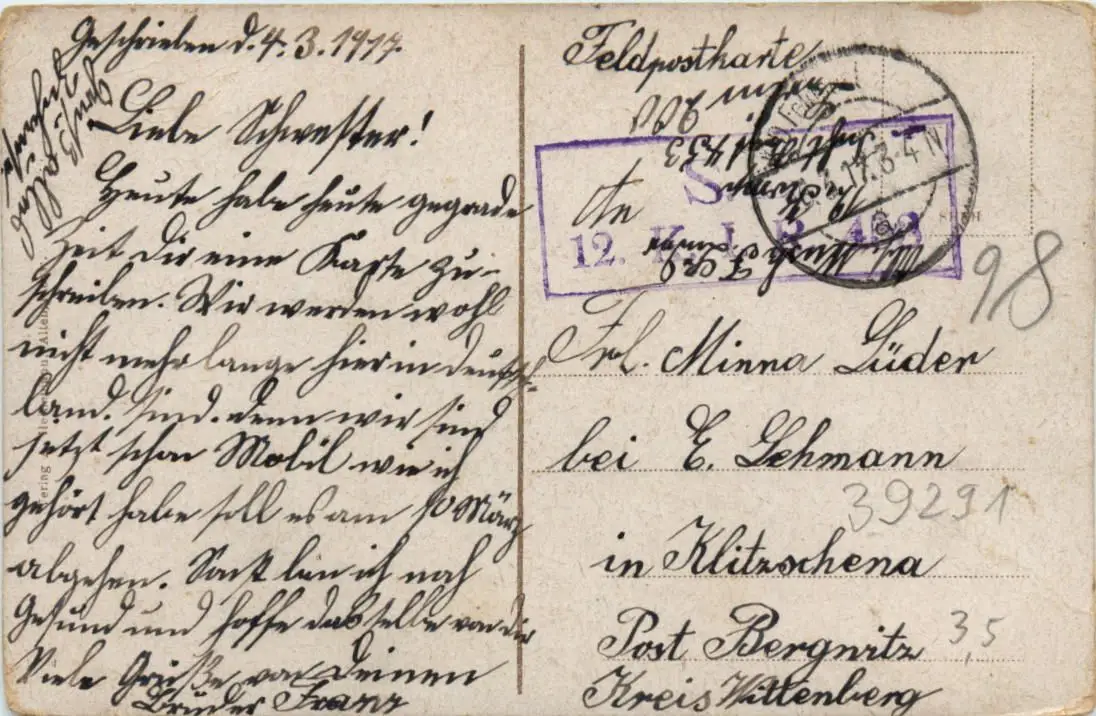 Geschrieben d. 4. 3. 1917.
Liebe Schwester!
Heute habe heute gegrade
Zeit dir eine Karte zu-
schreiben. Wir werden wohl
nicht mehr lange hier in Deutsch-
land. sind. denn wir sind
jetzt schon Mobil wie ich
gehört habe soll es am 10 März
abgehen. Sonst bin ich noch
Gesund und hoffe dasselbe von dir
Viele Grüße von Deinen
Bruder Franz
Feldpostkarte
S.
12. K. J. R.
Frl. Minna Lüder
bei E. Lehmann
in Klitzschena
Post Bergwitz
Kreis Wittenberg
98
39291
3,5